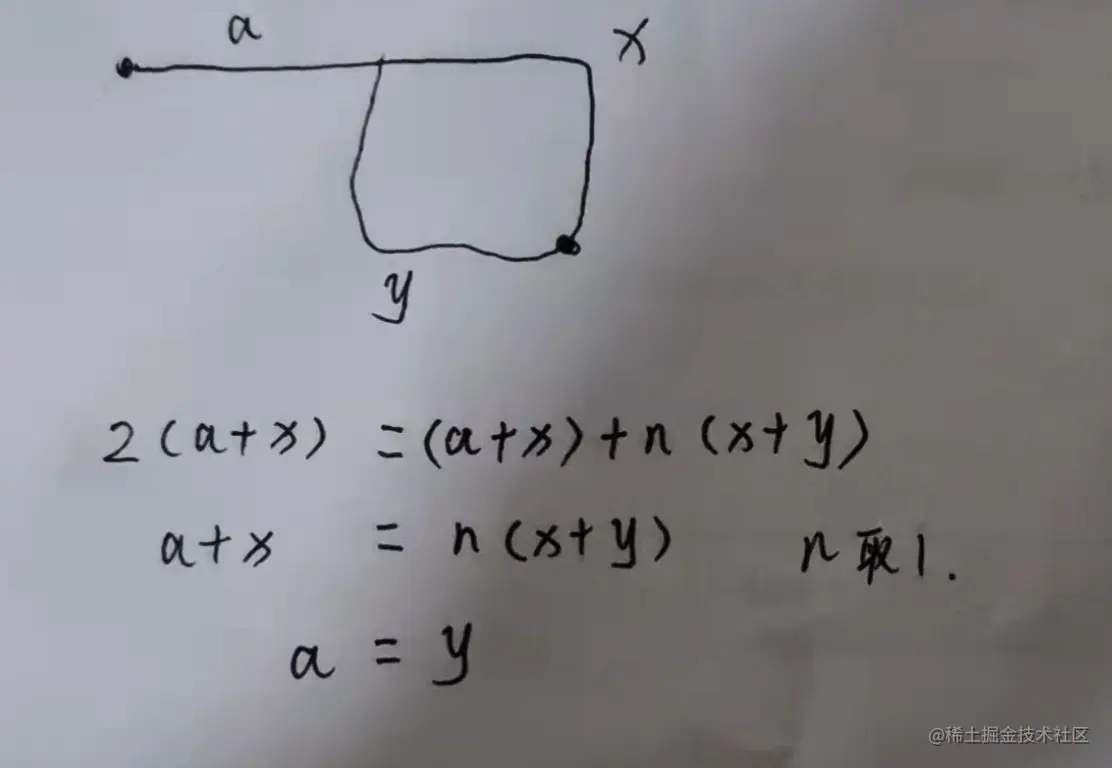 a
x
y
2(a+x) =(a+x)+n(x+y)
a+x = n(x+y) n取1.
a = y
@稀土掘金技术社区